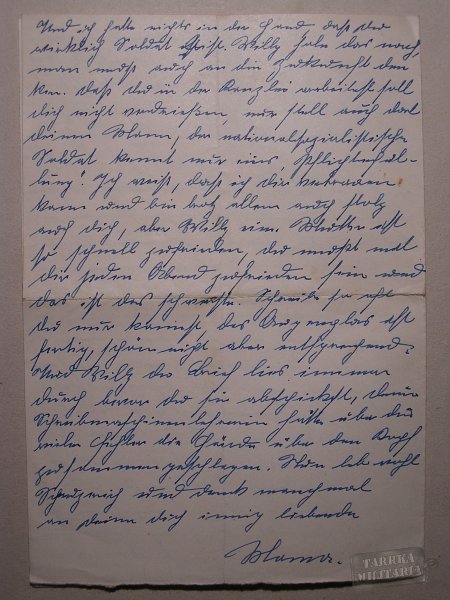 Und ich hatte nichts in der Hand daß Du
wirklich Soldat bist. Willy hole das nach,
man muß auch an die Zukunft den-
ken. Daß du in der Kanzlei arbeitest soll
dich nicht verdrießen, nur stell auch dort
deinen Mann, der nationalsozialistische
Soldat kennt nur eins "Pflichterfül-
lung". Ich weiß, daß ich dir vertrauen
kann und bin trotz allem auch stolz
auf dich, aber Willy eine Mutter ist
so schnell zufrieden, du mußt mal
dir jeden Abend zufrieden sein und
das ist das schwerste. Schreibe so oft
Du nur kannst, das Augenglas ist
fertig, schön nicht aber entsprechend.
Und Willy die Briefe lies immer
durch bevor du sie abschickst, deine
Schreibmaschinenlehrerin hätte über die
vielen Fehler die Hände über den Kopf
zusammengeschlagen. Nun leb wohl
und denk manchmal
an deine dich innig liebende
Mama.
TARRKA
MILITARIA